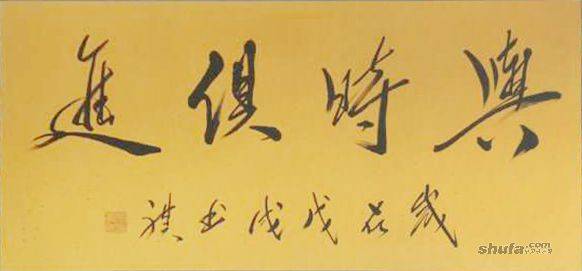 與時俱進
歲在戊戌书祺
shufa.com